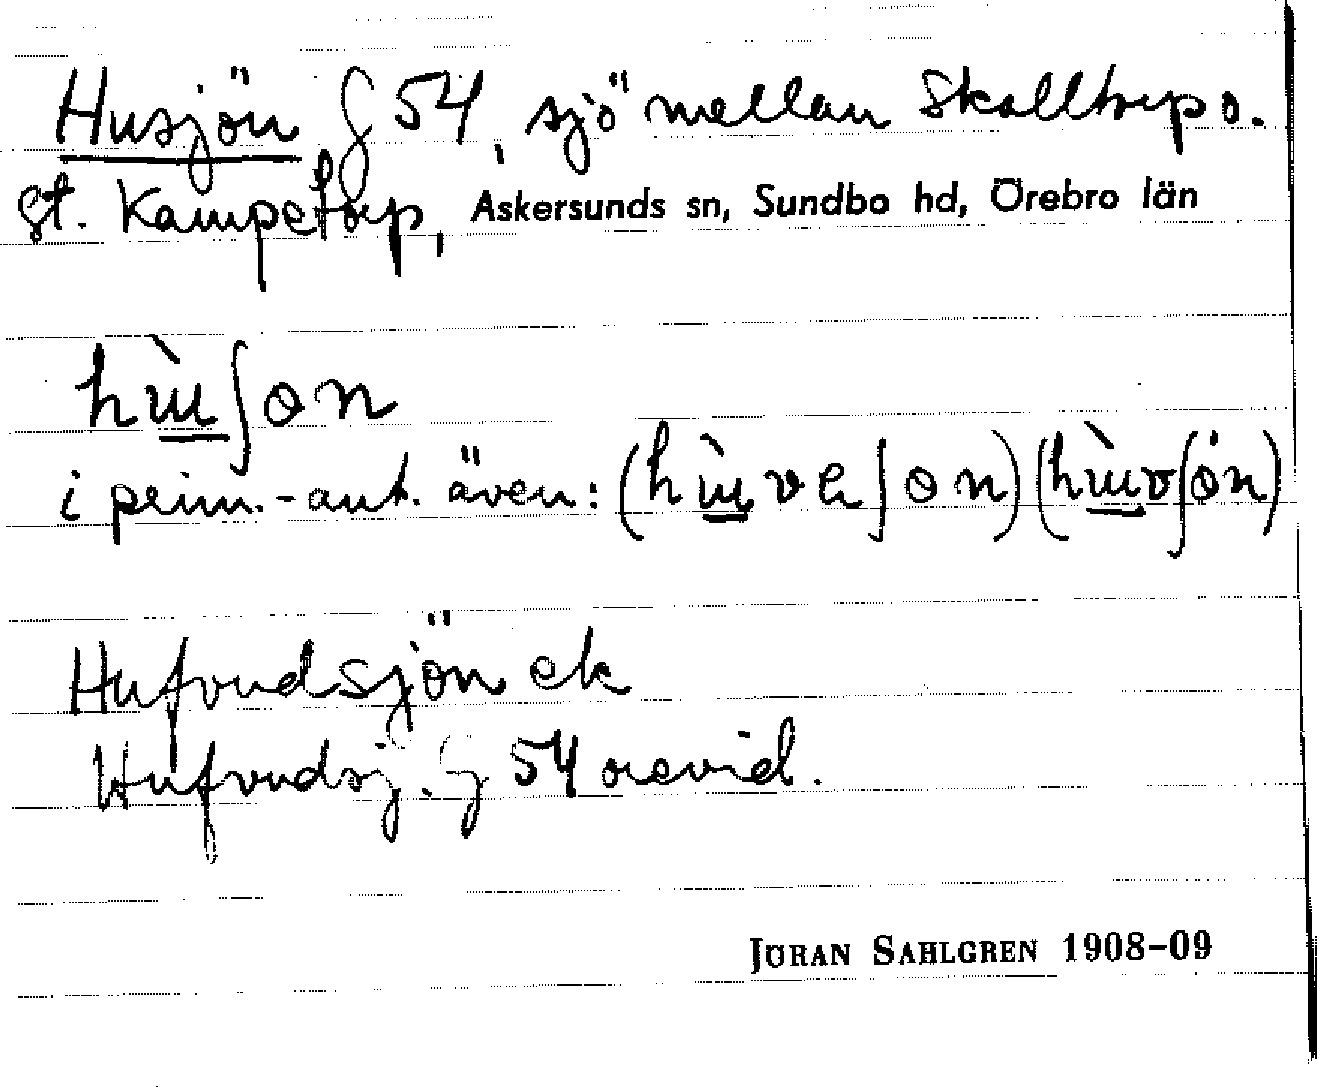 Husjön § 54, sjö mellan Skalltorp o.
St. Kampetorp, Askersunds sn, Sundbo hd, Örebro län
hɯ̀ʃɵn
i prim.-ant. även: (hɯ̀veʃɵn) (hɯ̀vʃɵ̀n)
Hufvudsjön ek
Hufvudsj. § 54 orevid.
JÖRAN SAHLGREN 1908-09